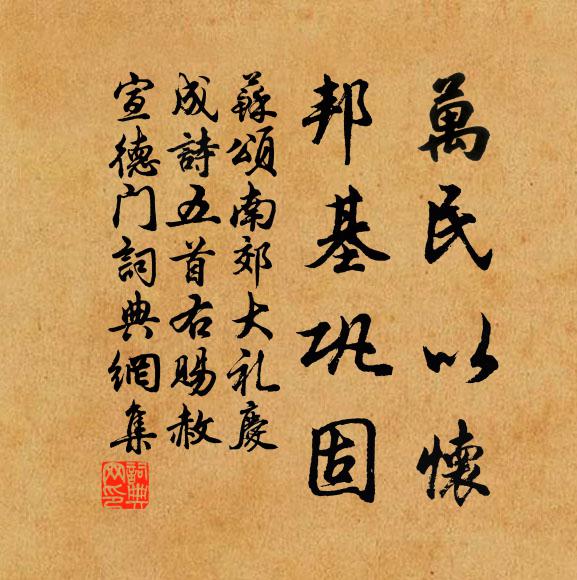 萬民以懷
邦基巩固
蘇頌南郊大礼慶
成詩五首右賜赦
宣德门詞典網集
詞典
网印